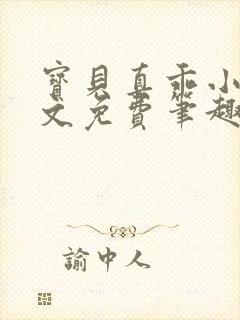 寶見真乖小
文免費筆趣
諭中人